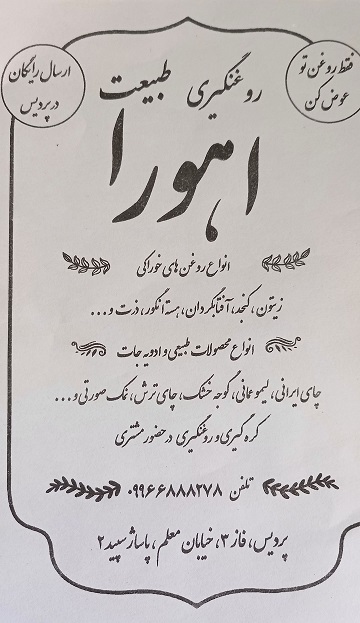 فقط روغن تو
عوض کن
ارسال رایگان
در پردیس
روغنگیری طبیعت
اهورا
انواع روغن های خوراکی
زیتون، کنجد، آفتابگردان، هسته انگور، ذرت و...
انواع محصولات طبیعی و ادویه جات
چای ایرانی، لیمو عمانی، گوجه خشک، چای ترش، نمک صورتی و...
کره گیری و روغنگیری در حضور مشتری
تلفن ۰۹۹۶۶۸۸۸۲۷۸
پردیس، فاز ۳، خیابان معلم، پاساژ سپید ۲